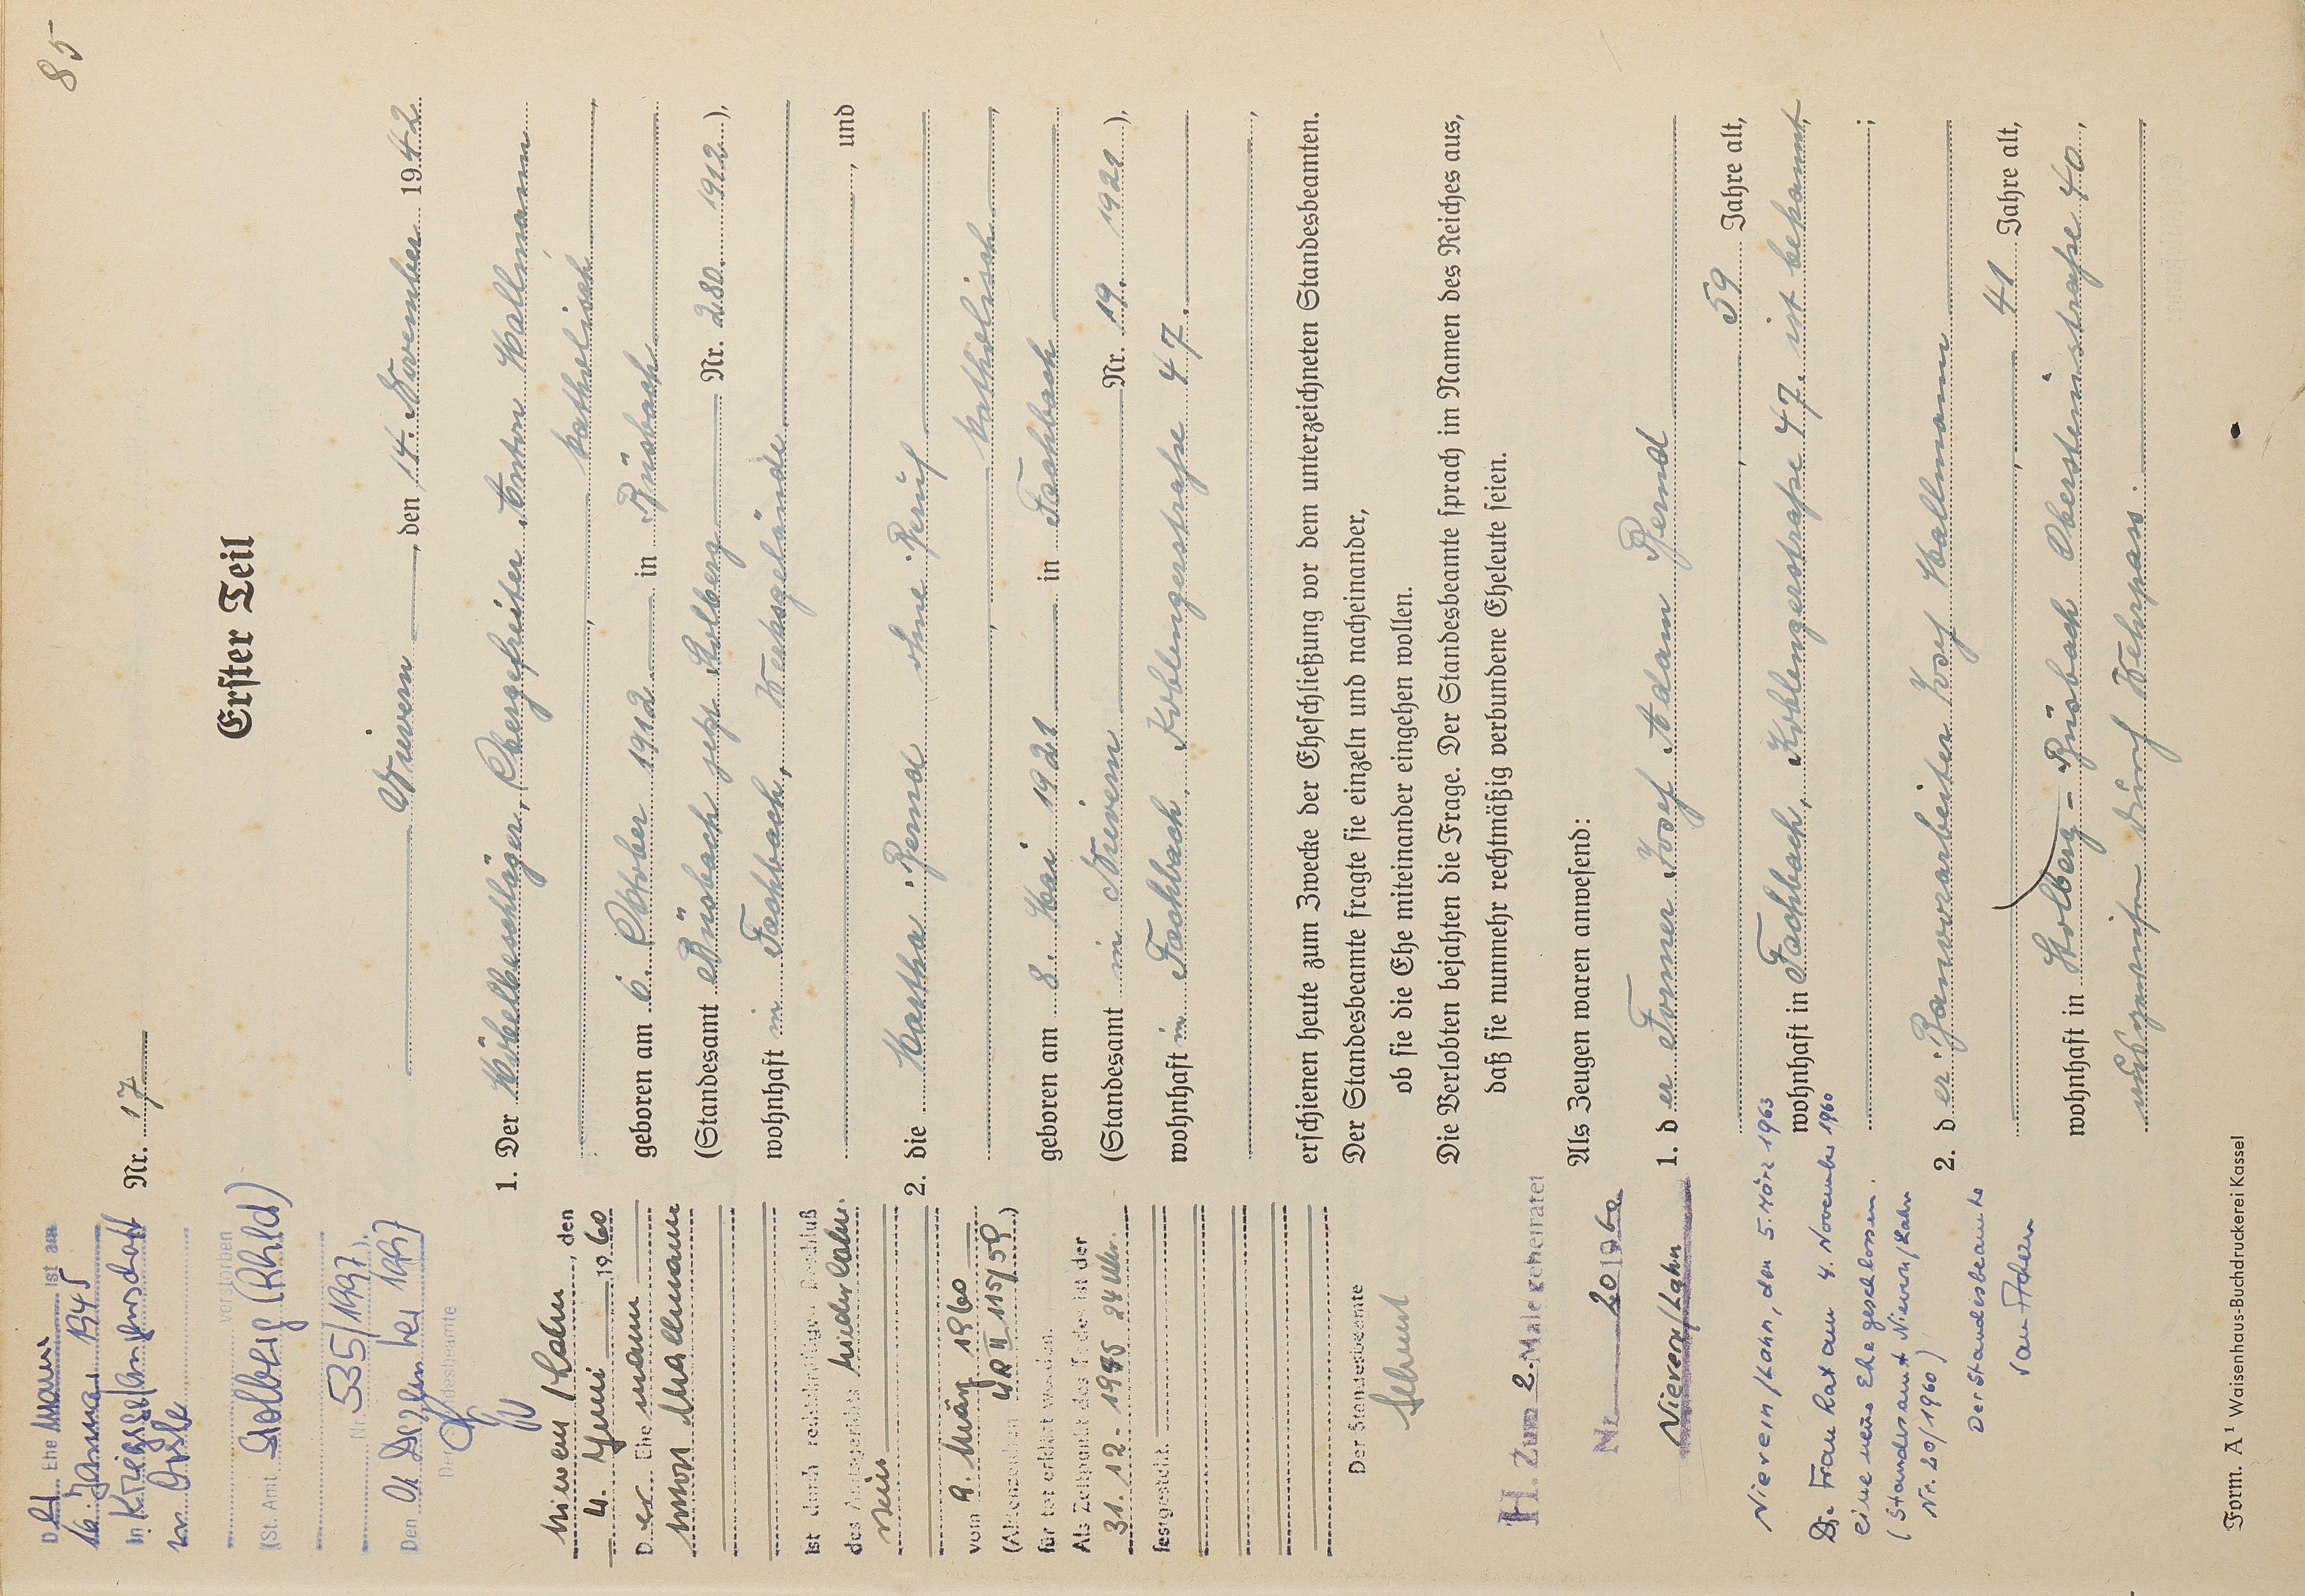 85
Nr. 17
Erster Teil
Nievern, den 14. November 1942
1. Der Möbelbeschläger, Obergefreiter Anton Mallmann
katholisch
geboren am 6. Oktober 1912 in Büsbach
(Standesamt Büsbach jetzt Stolberg Nr. 280. 1912),
wohnhaft in Fachbach, Werksgelände
, und
2. die Martha Bernd ohne Beruf
katholisch
geboren am 8. Mai 1921 in Fachbach
(Standesamt in Nievern Nr. 19. 1921),
wohnhaft in Fachbach, Koblenzerstraße 47.
erschienen heute zum Zwecke der Eheschließung vor dem unterzeichneten Standesbeamten.
Der Standesbeamte fragte sie einzeln und nacheinander,
ob sie die Ehe miteinander eingehen wollen.
Die Verlobten bejahten die Frage. Der Standesbeamte sprach im Namen des Reiches aus,
daß sie nunmehr rechtmäßig verbundene Eheleute seien.
Als Zeugen waren anwesend:
1. der Former Josef Adam Bernd
59 Jahre alt,
wohnhaft in Fachbach, Koblenzerstraße 47. ist bekannt,
;
2. der Bauvorarbeiter Josef Mallmann
41 Jahre alt,
wohnhaft in Stolberg - Büsbach Obersteinstraße 40,
ausgewiesen durch Wehrpass.
Der Ehemann ist am
16. Januar 1945
in Kriegsgefangenschaft
verstorben
(St. Amt Stolberg (Rhld)
Nr. 535/1997).
Den 01 Dezember 1997
Der Standesbeamte
Nievern/Lahn, den
4. Juni 1960
Der Ehemann
Anton Mallmann
ist durch rechtskräftigen Beschluß
des Amtsgerichts Niederlahn-
stein
vom 9. März 1960
(Aktenzeichen 4 R II 115/59)
für tot erklärt worden.
Als Zeitpunkt des Todes ist der
31.12.1945 24 Uhr.
festgestellt.
Der Standesbeamte
H. Zum 2. Male geheiratet
Nr. 20 1960
Nievern/Lahn
Nievern/Lahn, den 5. März 1963
Die Frau hat am 4. November 1960
eine neue Ehe geschlossen.
(Standesamt Nievern/Lahn
Nr. 20/1960)
Der Standesbeamte
Form. A¹ Waisenhaus-Buchdruckerei Kassel